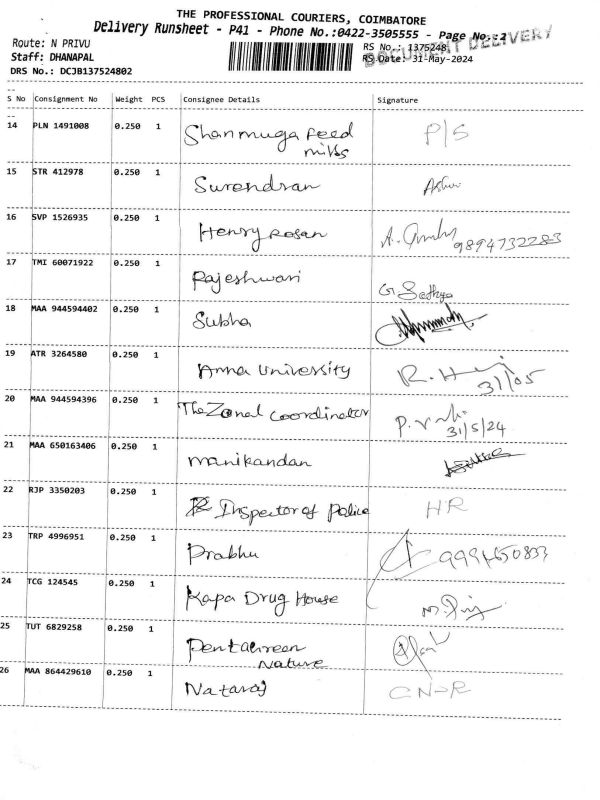 THE PROFESSIONAL COURIERS, COIMBATORE
Delivery Runsheet - P41 - Phone No.:0422-3505555 - Page No.:2
DOCUMENT DELIVERY
Route: N PRIVU RS No.: 1375248
Staff: DHANAPAL RS Date: 31-May-2024
DRS No.: DCJB137524802
S No Consignment No Weight PCS Consignee Details Signature
14 PLN 1491008 0.250 1 Shanmuga feed P/S
mills
15 STR 412978 0.250 1 Surendran
16 SVP 1526935 0.250 1 Henry Rosan A. 9894732283
17 TMI 60071922 0.250 1 Rajeshwari G. Sathya
18 MAA 944594402 0.250 1 Subha
19 ATR 3264580 0.250 1 Anna University R.
31/05
20 MAA 944594396 0.250 1 The Zonal Coordinator P.
31/5/24
21 MAA 650163406 0.250 1 Manikandan
22 RJP 3350203 0.250 1 Inspector of Police HR
23 TRP 4996951 0.250 1 Prabhu
24 TCG 124545 0.250 1 Kapa Drug House M.
25 TUT 6829258 0.250 1 Pentagreen
Nature
26 MAA 864429610 0.250 1 Nataraj